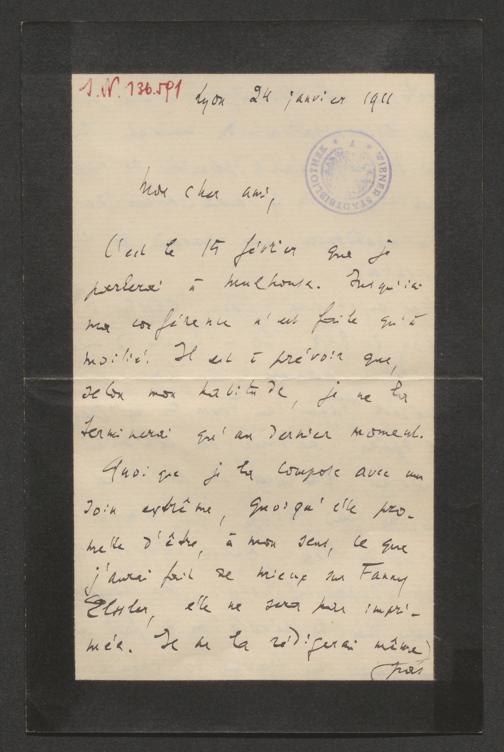 J.N. 136.591
Lyon 24 janvier 1911
WIENER STADTBIBLIOTHEK
Mon cher ami,
C'est le 15 février que je
parlerai à Mulhouse. Jusqu'ici
ma conférence n'est faite qu'à
moitié. Il est à prévoir que,
selon mon habitude, je ne la
terminerai qu'au dernier moment.
Quoique je la compose avec un
soin extrême, quoiqu'elle pro-
mette d'être, à mon sens, ce que
j'aurai fait de mieux sur Fanny
Elssler, elle ne sera pas impri-
mée. Je ne la rédigerai même
pas